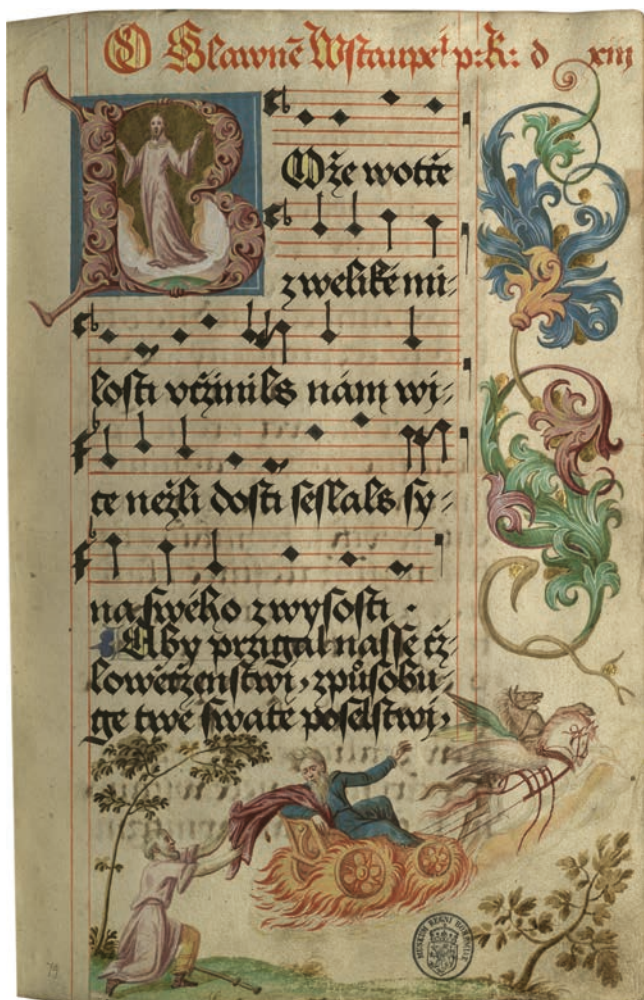 O Slawne Wstaupe: p: k: d xiij
BOže wotče
z welikė mi-
losti včžinils nám wi-
ce nežli dosti seslals sy-
na swėho z wysosti.
Aby przigal nasse čž-
lowěčženstwi, způsobu-
ge twė swatė poselstwi,
MUSEUM REGNI BOHEMIAE
79